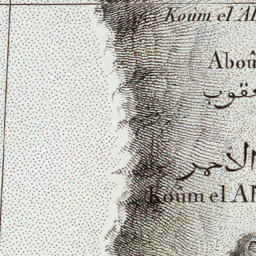 Koum el Al
Aboû
عقوب
الأحمر
Koûm el A